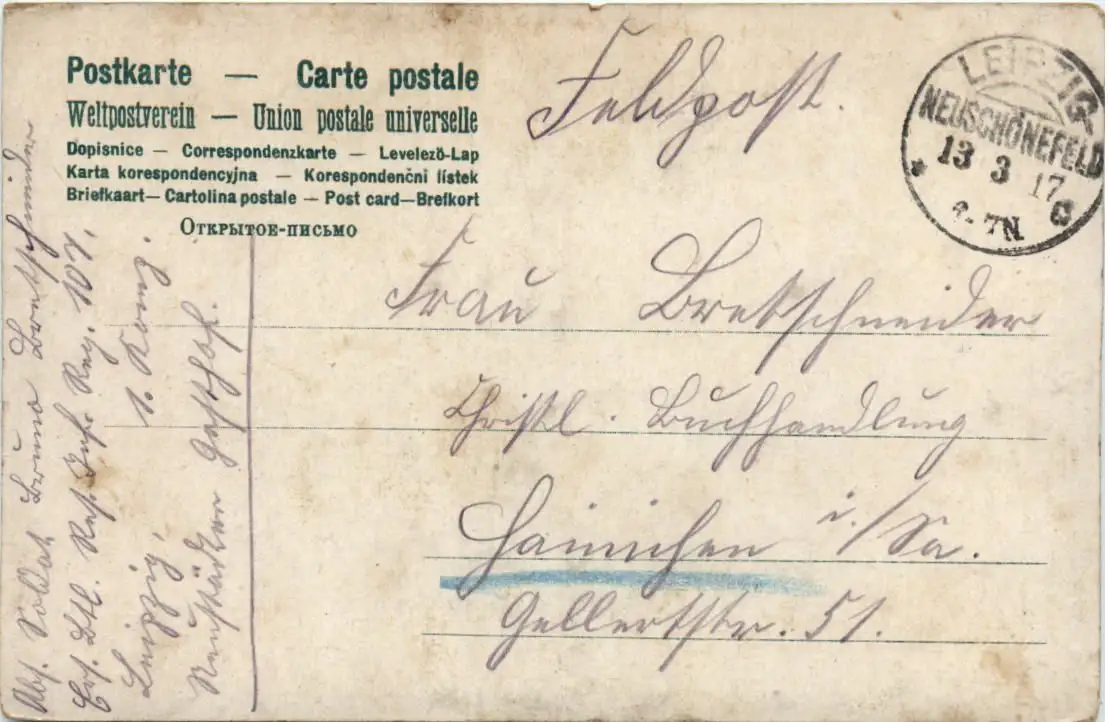 Postkarte — Carte postale
Weltpostverein — Union postale universelle
Dopisnice — Correspondenzkarte — Levelező-Lap
Karta korespondencyjna — Korespondenčni lístek
Briefkaart — Cartolina postale — Post card — Brefkort
Открытое-письмо
Feldpost.
LEIPZIG-
NEUSCHÖNEFELD
13 3 17
7N
C
Frau Bretschneider
Christl. Buchhandlung
Hainichen i./Sa.
Gellertstr. 51.
Abs. Soldat Bruno Bretschneider
Ers. Btl. Res. Inf. Reg. 107,
1. Komp.
Leipzig,
Neustädter Gasthof.